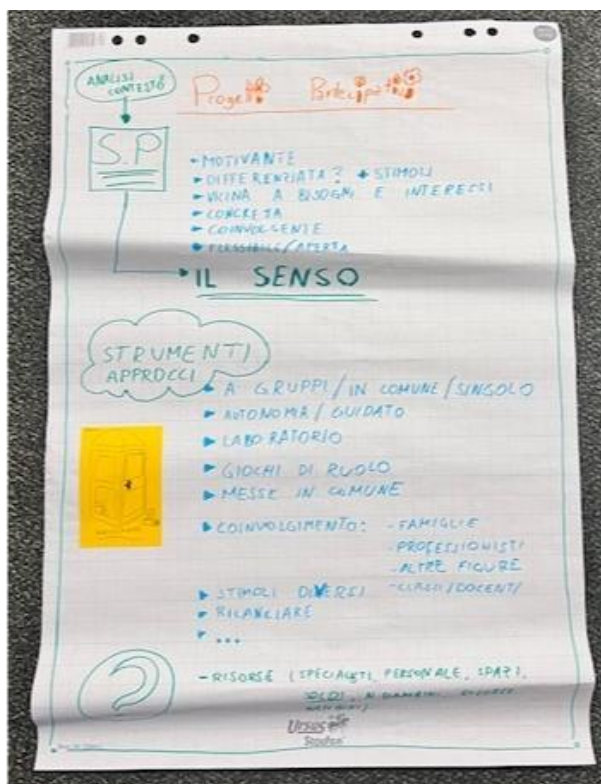 ANALISI
CONTESTO
Progetti Partecipativi
S.P
- MOTIVANTE
► DIFFERENZIATA? + STIMOLI
► VICINA A BISOGNI E INTERESSI
► CONCRETA
► COINVOLGENTE
► FLESSIBILE/APERTA
► IL SENSO
STRUMENTI
APPROCCI
► A GRUPPI/IN COMUNE/SINGOLO
► AUTONOMIA/GUIDATO
► LABORATORIO
► GIOCHI DI RUOLO
► MESSE IN COMUNE
► COINVOLGIMENTO: - FAMIGLIE
- PROFESSIONISTI
- ALTRE FIGURE
- CLASSI/DOCENTI
► STIMOLI DIVERSI
► RILANCIARE
► ...
?
- RISORSE (SPECIALISTI, PERSONALE, SPAZI,
SOLDI, N BAMBINI, 
Ursus